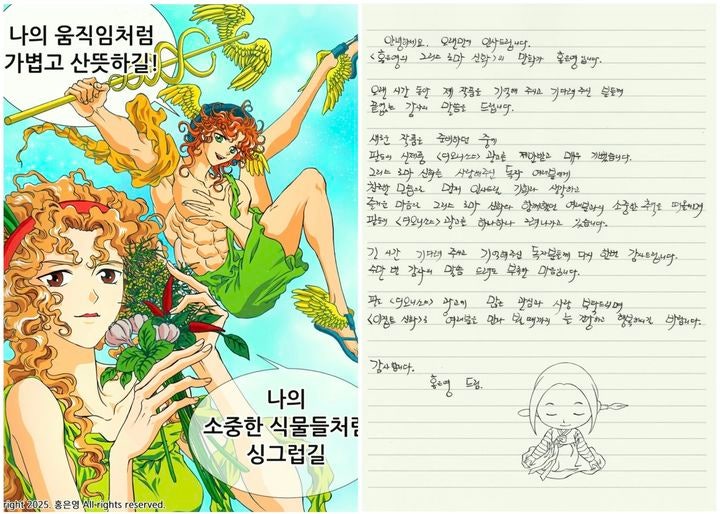 나의 움직임처럼
가볍고 산뜻하길!
나의
소중한 식물들처럼
싱그럽길
right 2025. 홍은영 All rights reserved.
안녕하세요. 오랜만에 인사드립니다.
<홍은영의 그리스 로마 신화>의 만화가 홍은영입니다.
오랜 시간 동안 제 작품을 기억해 주시고 기다려 주신 분들께
끝없는 감사의 말씀을 드립니다.
새로운 작품을 준비하던 중에
신제품 <디오니소스> 광고를 제안받고 매우 기뻤습니다.
그리스 로마 신화를 사랑해주신 독자 여러분께
친숙한 모습으로 먼저 인사드릴 기회라 생각하고
즐거운 마음으로 그리스 로마 신화와 함께했던 여러분과의 소중한 추억을 떠올리며
<디오니소스> 광고를 하나하나 그려나가고 있습니다.
긴 시간 기다려 주시고 기억해주신 독자분들께 다시 한번 감사드립니다.
수만 번 감사의 말씀을 드려도 부족한 마음입니다.
<디오니소스> 광고에 많은 관심과 사랑 부탁드리며
<이집트 신화>로 여러분을 만나 뵐 때까지 늘 건강하고 행복하시길 바랍니다.
감사합니다.
홍은영 드림.